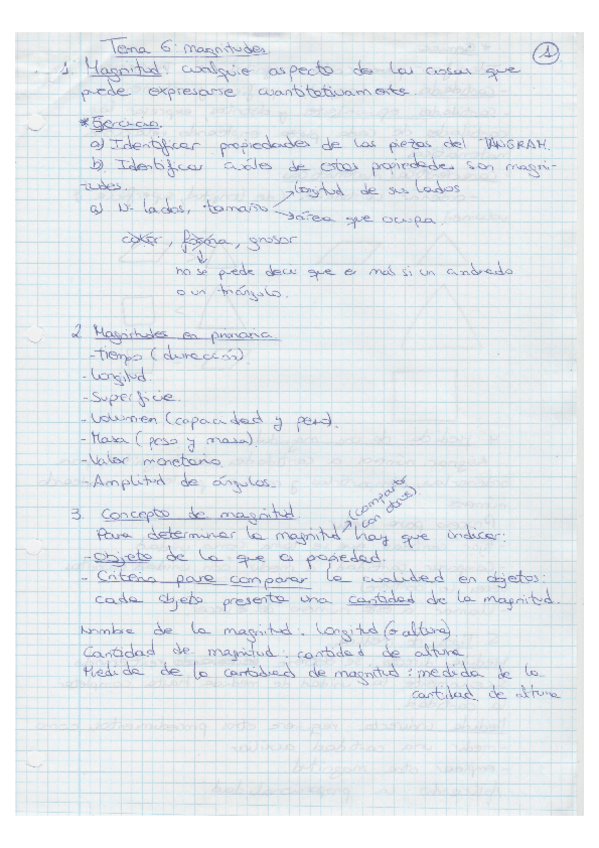 Tema 6: magnitudes
1
1. Magnitud: cualquie aspecto de las cosas que
puede expresarse cuantitativamente.
* Ejercicio.
a) Identificar propiedades de las piezas del TANGRAM.
b) Identificar cuáles de estas propiedades son magni-
tudes.
longitud de sus lados
a) Nº lados, tamaño
área que ocupa.
color, forma, grosor
no se puede decir que es más si un cuadrado
o un triángulo.
2. Magnitudes en primaria
- Tiempo (duración).
- Longitud.
- Superficie.
- Volumen (capacidad y peso).
- Masa (peso y masa).
- Valor monetario.
- Amplitud de ángulos.
3. Concepto de magnitud
(comparar
con otros)
Para determinar la magnitud hay que indicar:
- Objeto de la que es propiedad.
- Criterio para comparar la cualidad en objetos:
cada objeto presenta una cantidad de la magnitud.
Nombre de la magnitud: longitud (o altura)
Cantidad de magnitud: cantidad de altura
Medida de la cantidad de magnitud: medida de la
cantidad de altura